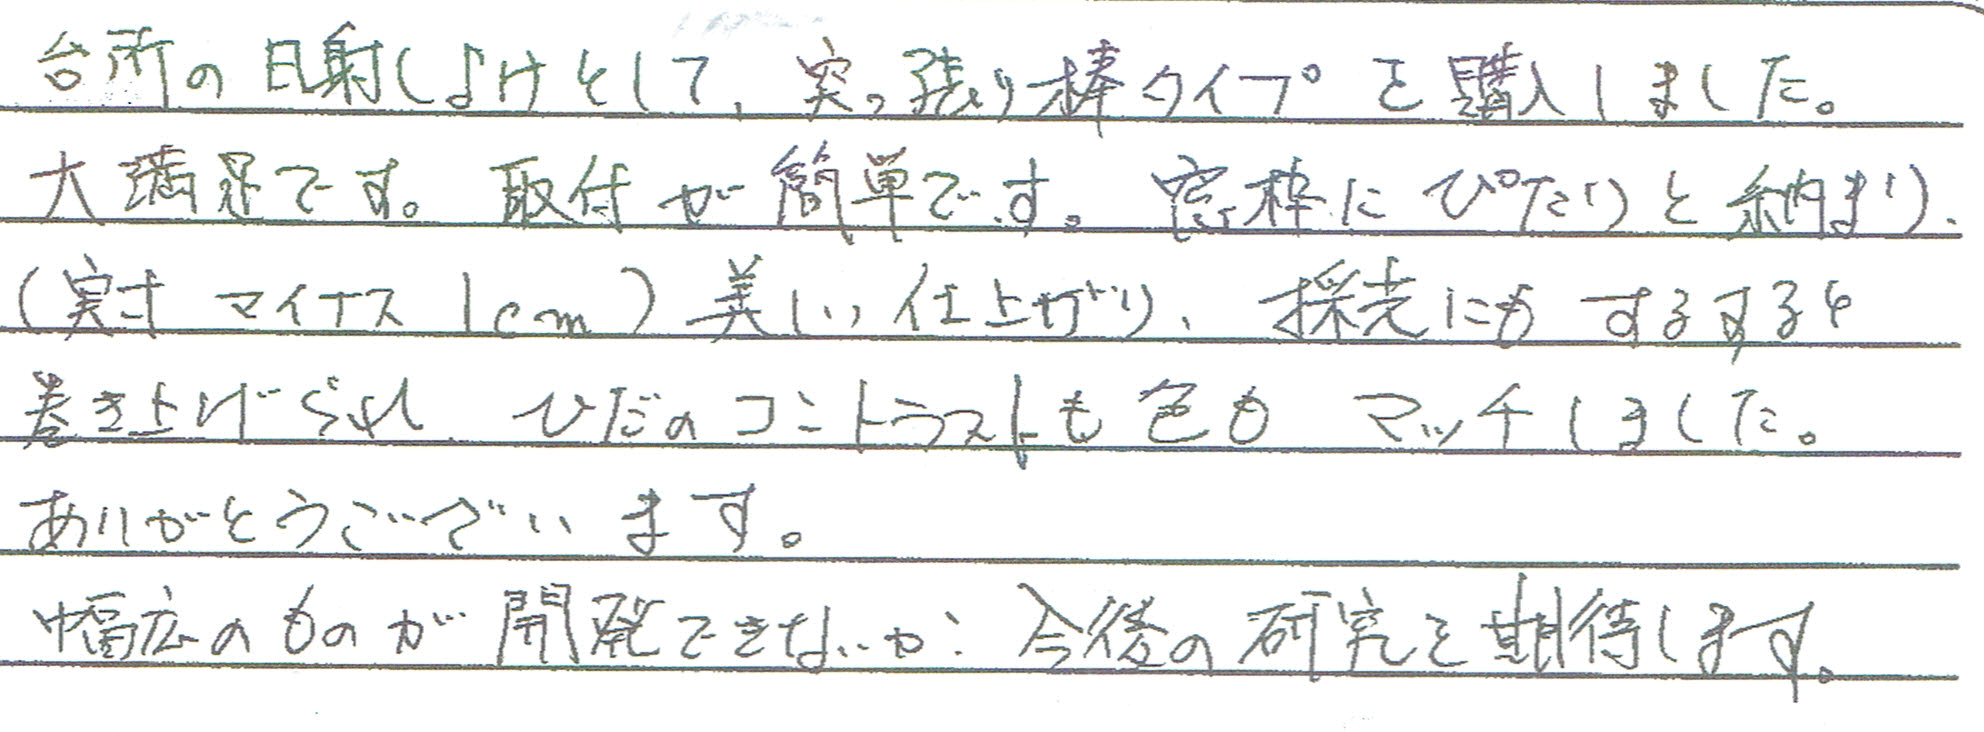 台所の日射しよけとして、突っ張り棒タイプを購入しました。
大満足です。取付が簡単です。窓枠にぴたりと納まり、
(実寸 マイナス 1cm) 美しい仕上がり、採光にもするすると
巻き上げられ ひだのコントラストも色も マッチしました。
ありがとうございます。
幅広のものが開発できないか: 今後の研究を期待します。